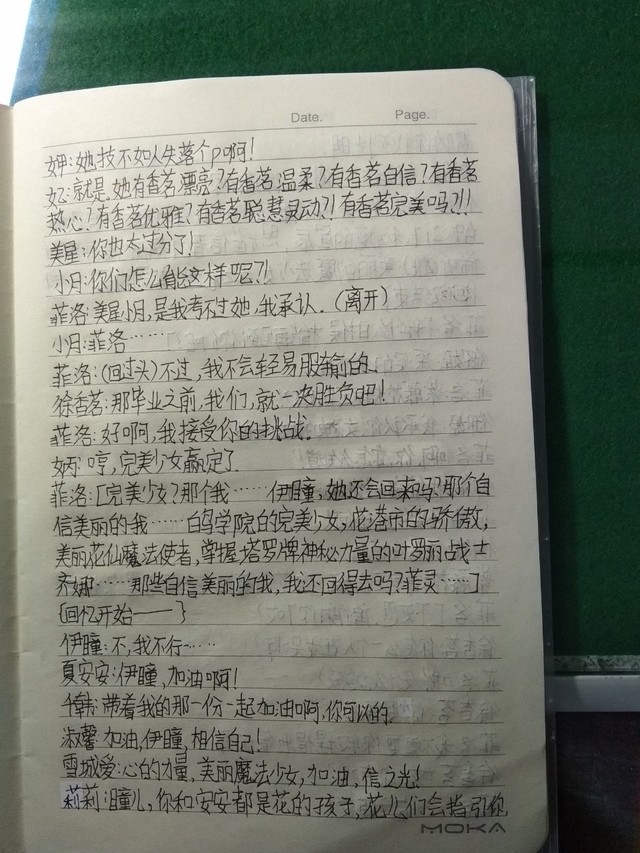 Date. Page.
女甲:她技不如人失落个p啊!
女乙:就是她有香茗漂亮?有香茗温柔?有香茗自信?有香茗
热心?有香茗优雅?有香茗聪慧灵动?!有香茗完美吗?!!
美星:你也太过分了!
小月:你们怎么能这样呢?!
菲洛:美星小月,是我考不过她,我承认.(离开)
小月:菲洛……
菲洛:(回过头)不过,我不会轻易服输的.
徐香茗:那毕业之前,我们,就一决胜负吧!
菲洛:好啊,我接受你的挑战.
女丙:哼,完美少女赢定了.
菲洛:[完美少女?那个我……伊瞳,她还会回来吗?那个自
信美丽的我……白鸽学院的完美少女,花港市的骄傲,
美丽花仙魔法使者,掌握塔罗牌神秘力量的叶罗丽战士
齐娜……那些自信美丽的我,我还回得去吗?菲灵……]
{回忆开始——}
伊瞳:不,我不行……
夏安安:伊瞳,加油啊!
千韩:带着我的那一份一起加油啊,你可以的.
淑馨:加油,伊瞳,相信自己!
雪城爱:心的力量,美丽魔法少女,加油,信之光!
莉莉:瞳儿,你和安安都是花的孩子,花儿们会指引你
MOKA